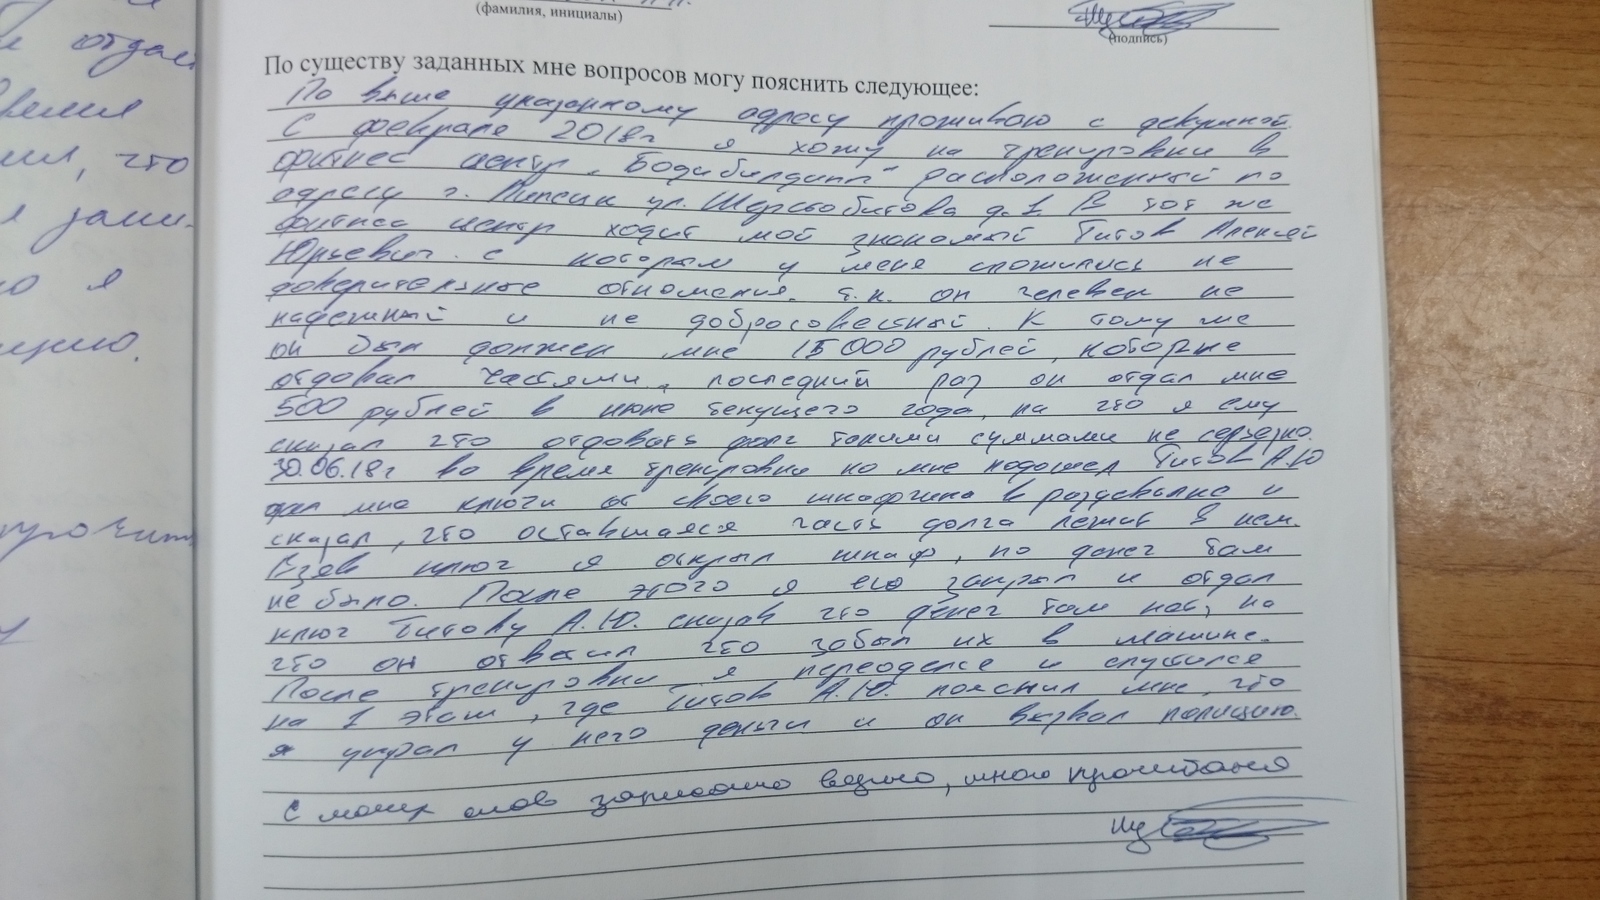 (фамилия, инициалы)
(подпись)
По существу заданных мне вопросов могу пояснить следующее:
По выше указанному адресу проживаю с девушкой.
С февраля 2018г я хожу на тренировки в
фитнес центр "Бодибилдинг" расположенный по
адресу г. Липецк ул. Шерстобитова д.1. В тот же
фитнес центр ходит мой знакомый Титов Алексей
Юрьевич с которым у меня сложились не
доверительные отношения. т.к. он человек не
надежный и не добросовестный. К тому же
он был должен мне 15000 рублей, которые
отдовал частями, последний раз он отдал мне
500 рублей в июне текущего года, на что я ему
сказал что отдовать долг такими суммами не серьезно.
30.06.18г во время тренировки ко мне подошел Титов А.Ю
дал мне ключи от своего шкафчика в раздевалке и
сказал, что оставшаяся часть долга лежит в нем.
Взяв ключ я открыл шкаф, но денег там
не было. После этого я его закрыл и отдал
ключ Титову А.Ю. сказав что денег там нет, на
что он ответил что забыл их в машине.
После тренировки я переоделся и спустился
на 1 этаж, где Титов А.Ю. пояснил мне, что
я украл у него деньги и он вызвал полицию.
С моих слов записано верно, мною прочитано
отдал
что
я